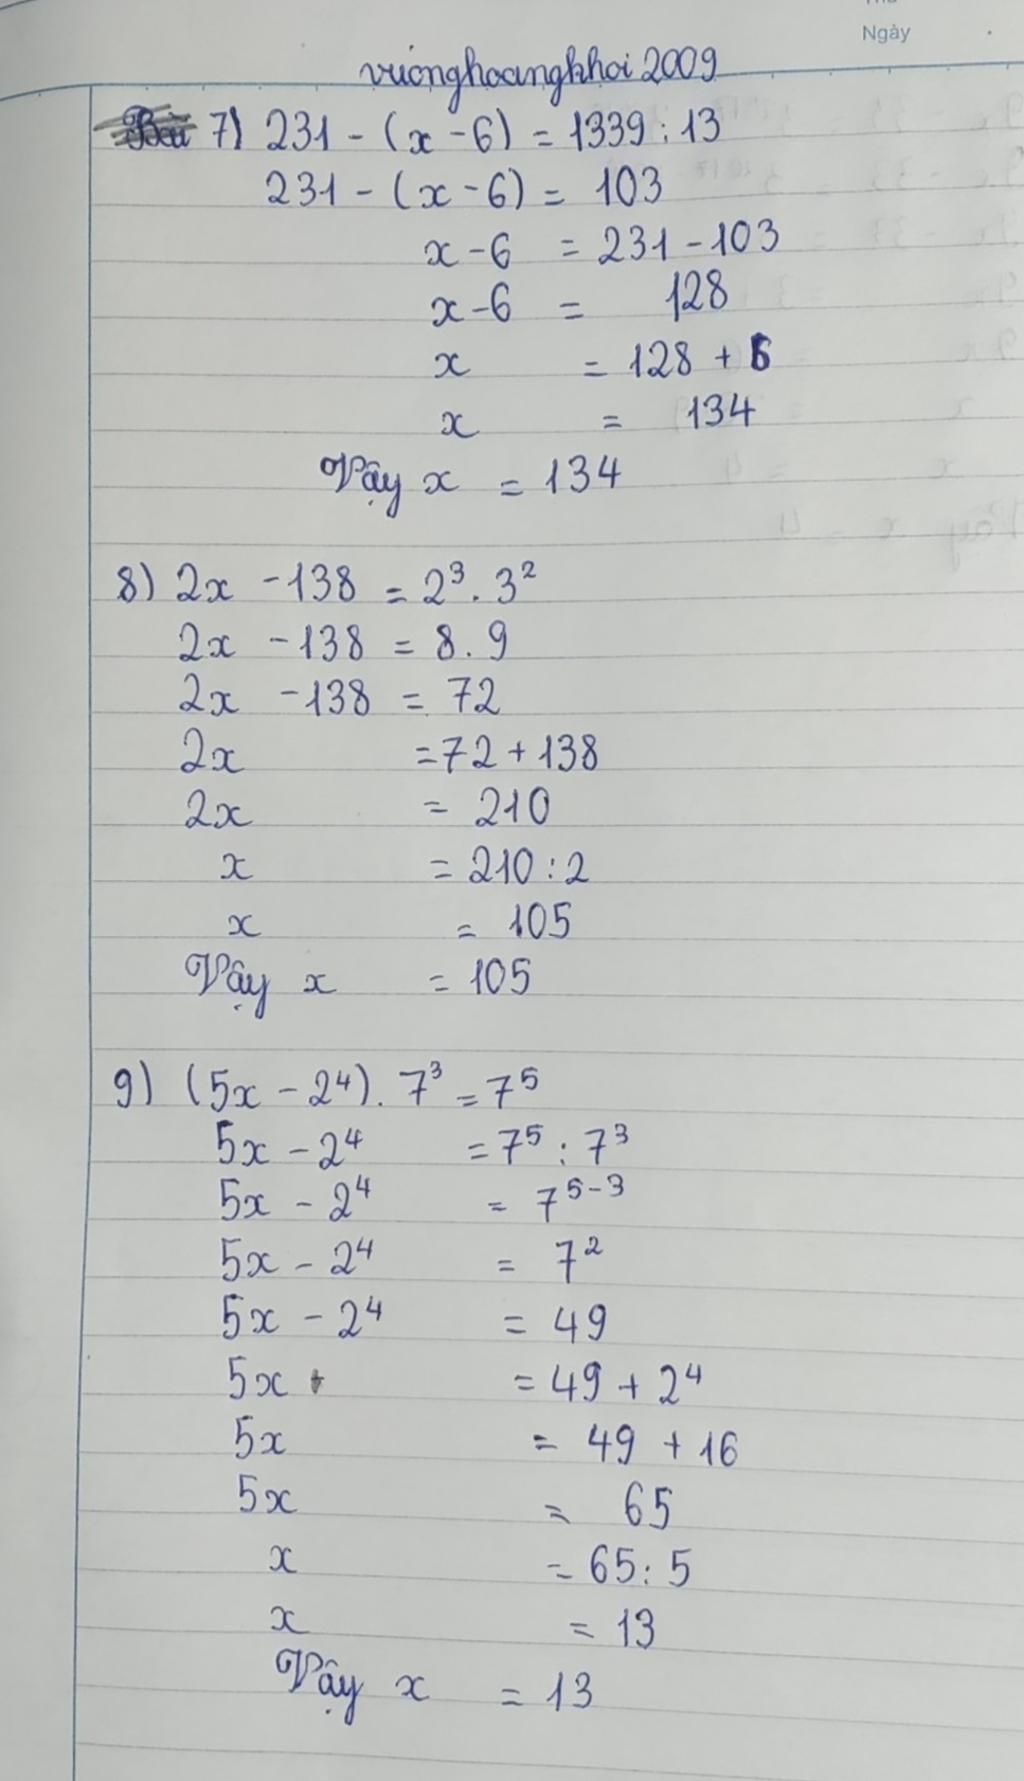 Ngày
vuonghoangkhoi2009
Bài 7) 231 - (x - 6) = 1339 : 13
231 - (x - 6) = 103
x - 6 = 231 - 103
x - 6 = 128
x = 128 + 6
x = 134
Vậy x = 134
8) 2x - 138 = 2³ . 3²
2x - 138 = 8 . 9
2x - 138 = 72
2x = 72 + 138
2x = 210
x = 210 : 2
x = 105
Vậy x = 105
9) (5x - 2⁴) . 7³ = 7⁵
5x - 2⁴ = 7⁵ : 7³
5x - 2⁴ = 7⁵⁻³
5x - 2⁴ = 7²
5x - 2⁴ = 49
5x = 49 + 2⁴
5x = 49 + 16
5x = 65
x = 65 : 5
x = 13
Vậy x = 13